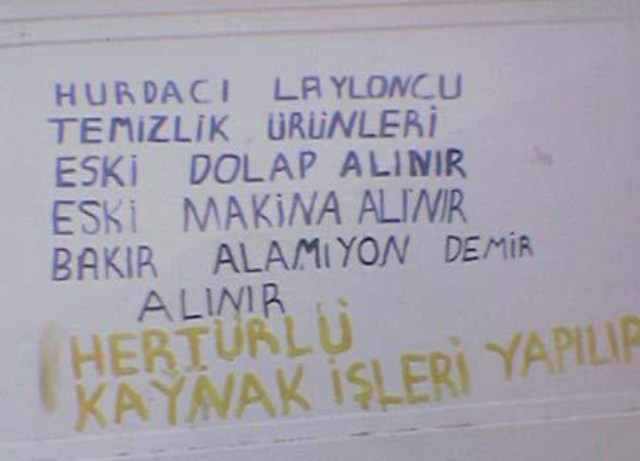 HURDACI LAYLONCU
TEMIZLIK ÜRÜNLERİ
ESKİ DOLAP ALINIR
ESKİ MAKİNA ALINIR
BAKIR ALAMIYON DEMİR
ALINIR
HERTÜRLÜ
KAYNAK İŞLERİ YAPILIR